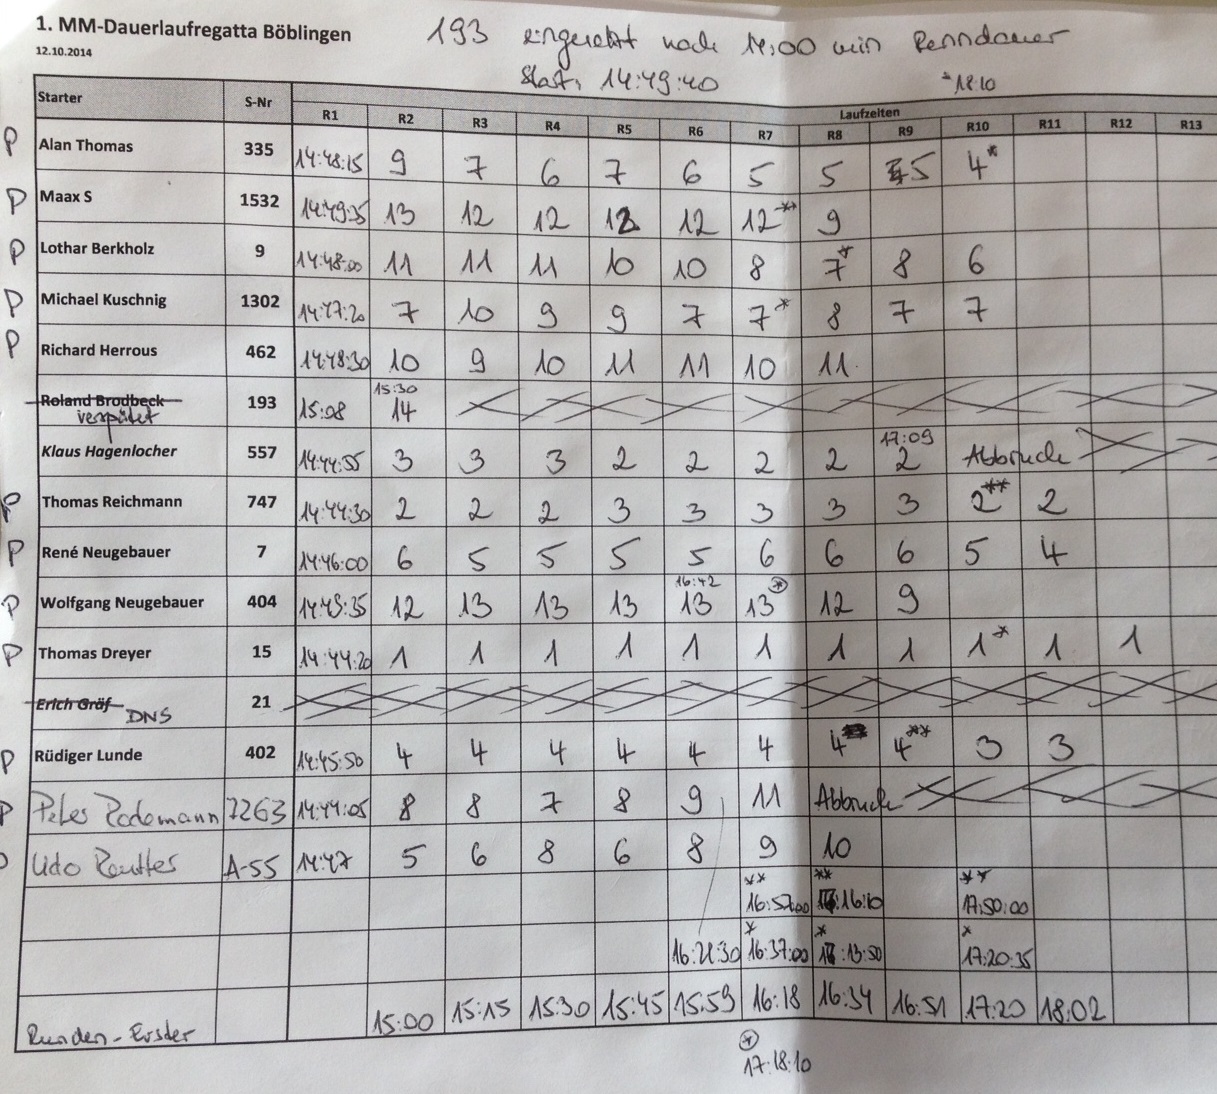 1. MM-Dauerlaufregatta Böblingen
12.10.2014
193 eingesetzt nach 14:00 min Renndauer
Start: 14:49:40
*18:10
Starter S-Nr Laufzeiten
R1 R2 R3 R4 R5 R6 R7 R8 R9 R10 R11 R12 R13
P Alan Thomas 335 14:48:15 9 7 6 7 6 5 5 5 4*
P Maax S 1532 14:49:35 13 12 12 12 12 12** 9
P Lothar Berkholz 9 14:48:00 11 11 11 10 10 8 7* 8 6
P Michael Kuschnig 1302 14:47:20 7 10 9 9 7 7* 8 7 7
P Richard Herrous 462 14:48:30 10 9 10 11 11 10 11
15:30
Roland Brodbeck 193 15:08 14
verspätet
17:09
Klaus Hagenlocher 557 14:44:55 3 3 3 2 2 2 2 2 Abbruch
P Thomas Reichmann 747 14:44:30 2 2 2 3 3 3 3 3 2** 2
P René Neugebauer 7 14:46:00 6 5 5 5 5 6 6 6 5 4
16:42
P Wolfgang Neugebauer 404 14:49:35 12 13 13 13 13 13* 12 9
P Thomas Dreyer 15 14:44:20 1 1 1 1 1 1 1 1 1* 1 1
Erich Gräf 21
DNS
P Rüdiger Lunde 402 14:45:50 4 4 4 4 4 4 4 4** 3 3
P Peter Rodemann 7263 14:44:05 8 8 7 8 9 11 Abbruch
Udo Reutter A-55 14:47 5 6 8 6 8 9 10
** ** **
16:52:00 16:10 17:50:00
* * *
16:21:30 16:37:00 13:50 17:20:35
Runden-Erster 15:00 15:15 15:30 15:45 15:59 16:18 16:34 16:51 17:20 18:02
*
17:18:10